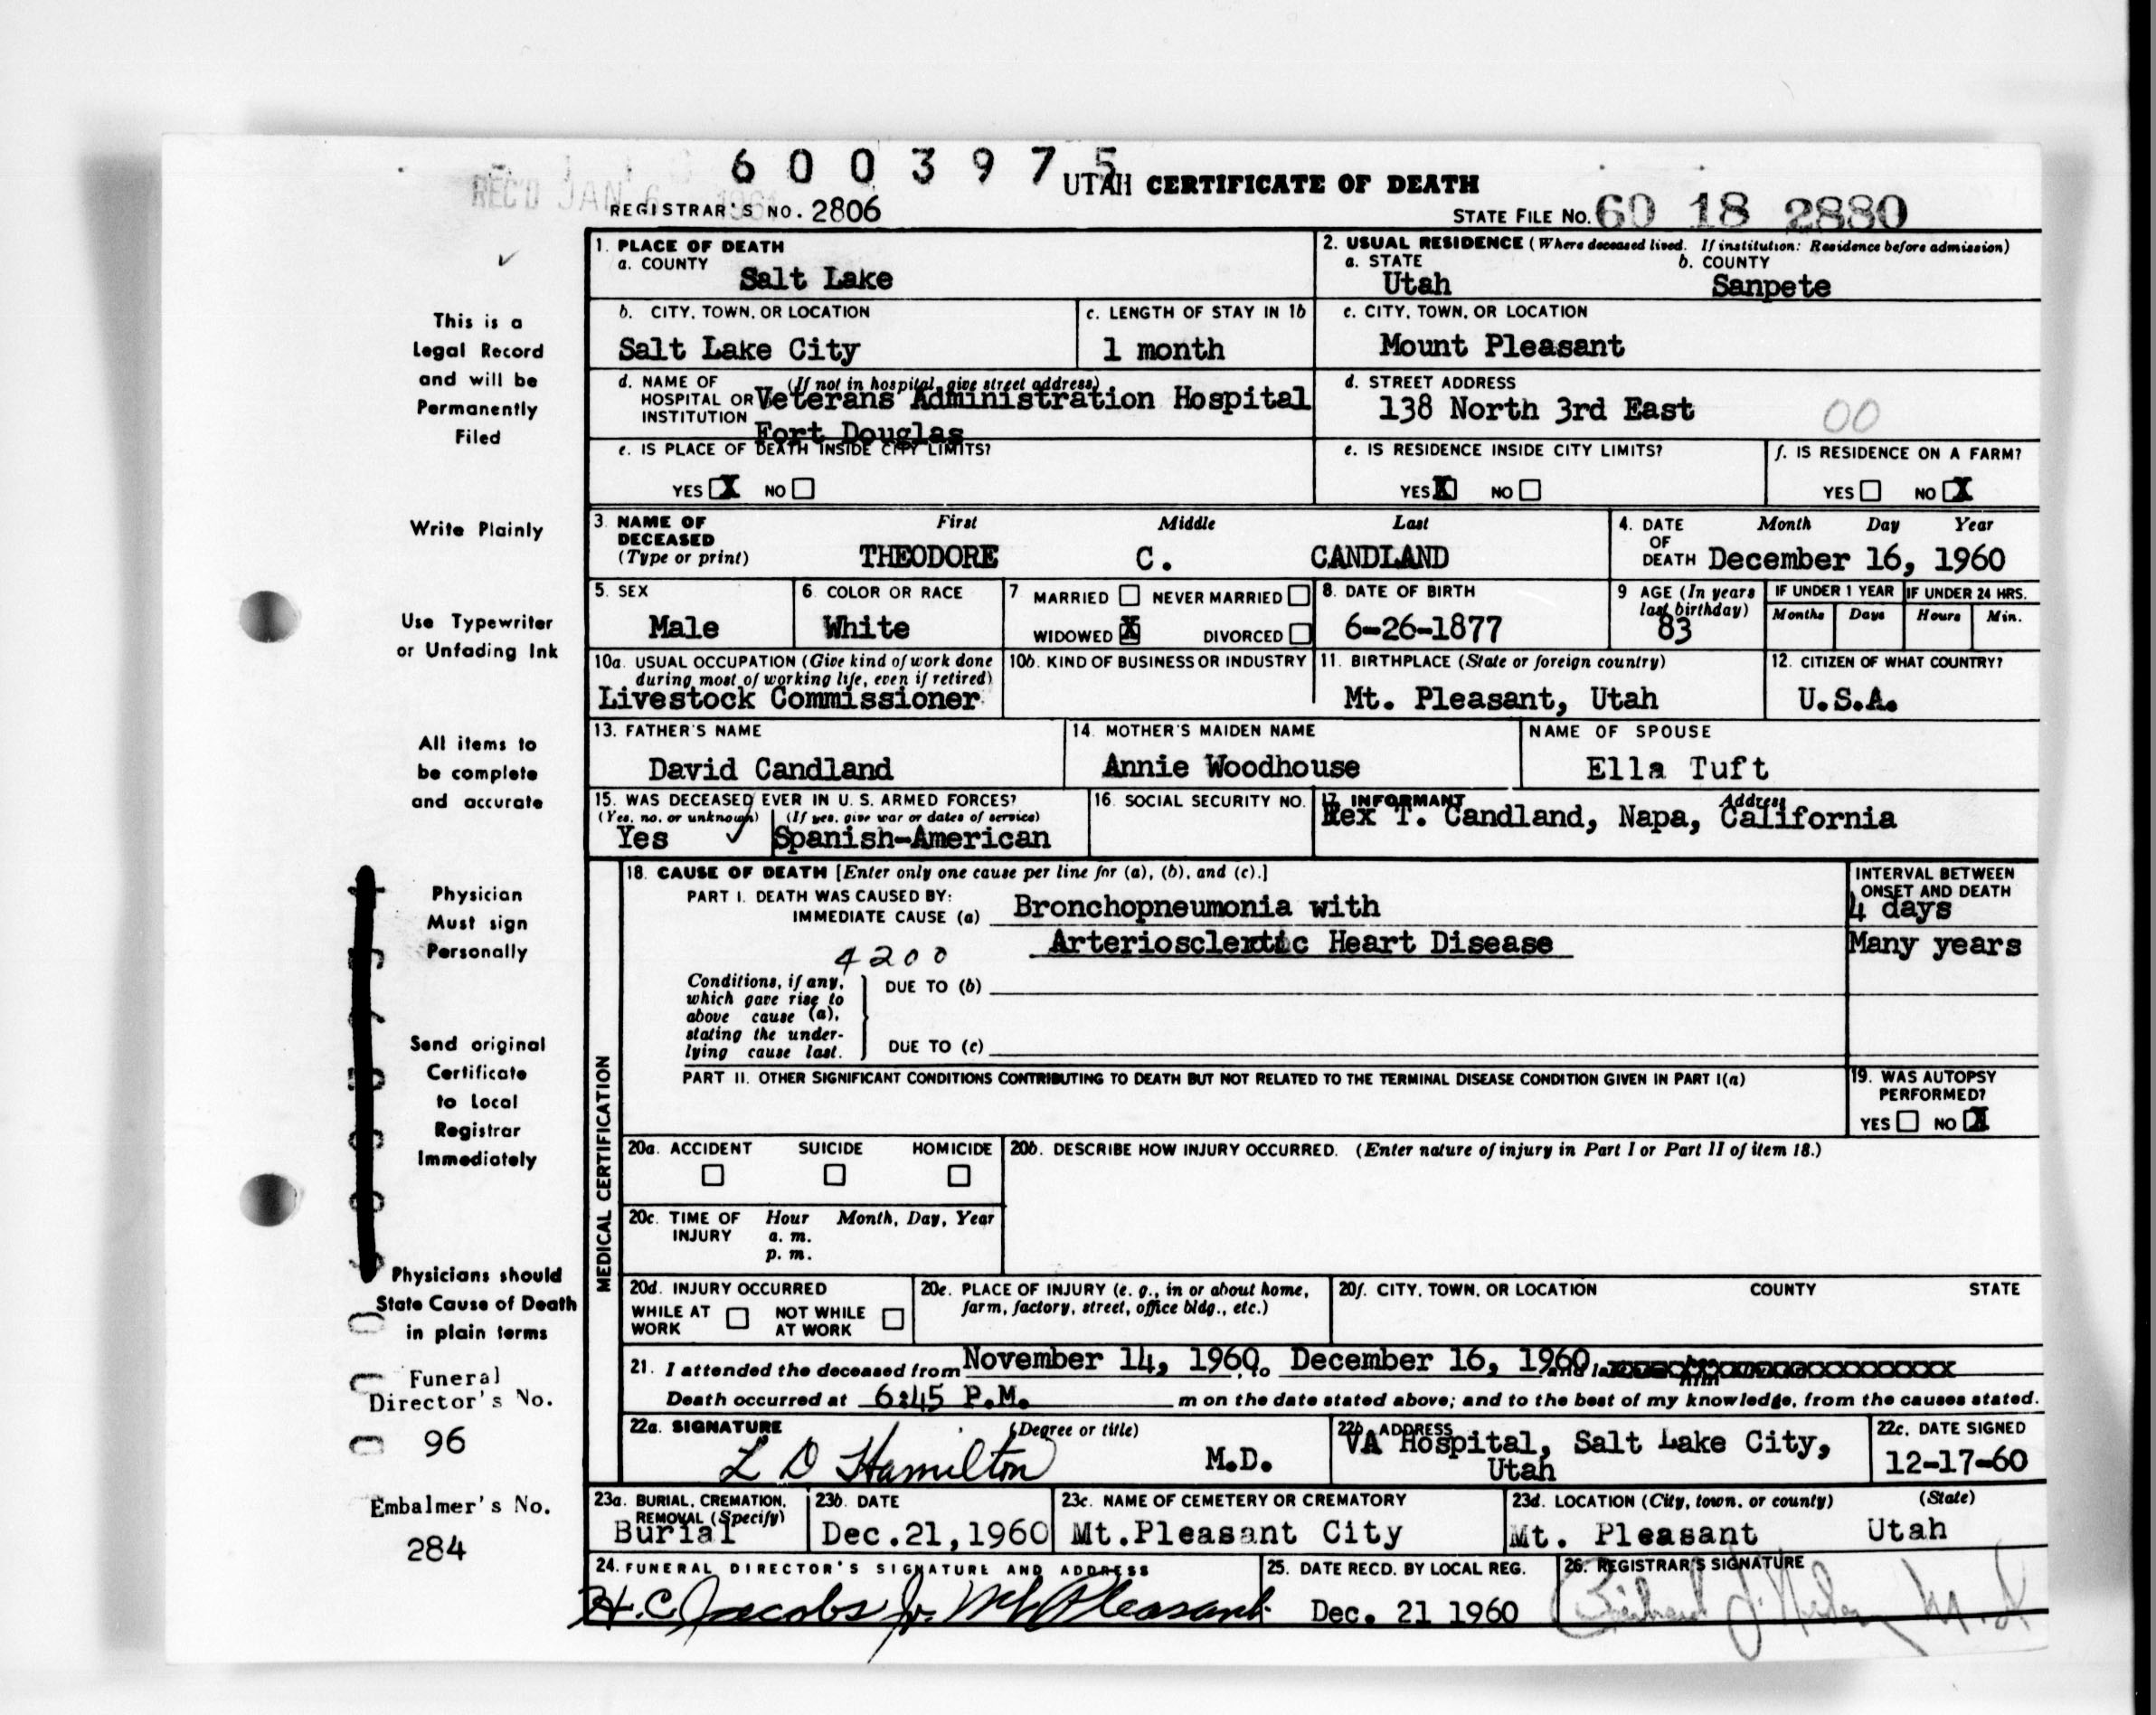 6 0 0 3 9 7 5
REC'D JAN 6 1961
UTAH CERTIFICATE OF DEATH
REGISTRAR'S NO. 2806
STATE FILE NO. 60 18 2880
This is a
Legal Record
and will be
Permanently
Filed
Write Plainly
Use Typewriter
or Unfading Ink
All items to
be complete
and accurate
Physician
Must sign
Personally
Send original
Certificate
to Local
Registrar
Immediately
Physicians should
State Cause of Death
in plain terms
Funeral
Director's No.
96
Embalmer's No.
284
1. PLACE OF DEATH
a. COUNTY
Salt Lake
2. USUAL RESIDENCE (Where deceased lived. If institution: Residence before admission)
a. STATE b. COUNTY
Utah Sanpete
b. CITY, TOWN, OR LOCATION
Salt Lake City
c. LENGTH OF STAY IN 1b
1 month
c. CITY, TOWN, OR LOCATION
Mount Pleasant
d. NAME OF (If not in hospital, give street address)
HOSPITAL OR Veterans Administration Hospital
INSTITUTION Fort Douglas
d. STREET ADDRESS
138 North 3rd East
00
e. IS PLACE OF DEATH INSIDE CITY LIMITS?
YES X NO
e. IS RESIDENCE INSIDE CITY LIMITS?
YES X NO
f. IS RESIDENCE ON A FARM?
YES NO X
3. NAME OF First Middle Last
DECEASED
(Type or print) THEODORE C. CANDLAND
4. DATE Month Day Year
OF
DEATH December 16, 1960
5. SEX
Male
6. COLOR OR RACE
White
7 MARRIED NEVER MARRIED
WIDOWED X DIVORCED
8. DATE OF BIRTH
6-26-1877
9 AGE (In years
last birthday)
83
IF UNDER 1 YEAR IF UNDER 24 HRS.
Months Days Hours Min.
10a. USUAL OCCUPATION (Give kind of work done
during most of working life, even if retired)
Livestock Commissioner
10b. KIND OF BUSINESS OR INDUSTRY
11. BIRTHPLACE (State or foreign country)
Mt. Pleasant, Utah
12. CITIZEN OF WHAT COUNTRY?
U.S.A.
13. FATHER'S NAME
David Candland
14. MOTHER'S MAIDEN NAME
Annie Woodhouse
NAME OF SPOUSE
Ella Tuft
15. WAS DECEASED EVER IN U. S. ARMED FORCES?
(Yes, no. or unknown) (If yes, give war or dates of service)
Yes Spanish-American
16. SOCIAL SECURITY NO.
17. INFORMANT Address
Rex T. Candland, Napa, California
MEDICAL CERTIFICATION
18. CAUSE OF DEATH [Enter only one cause per line for (a), (b), and (c).]
INTERVAL BETWEEN
ONSET AND DEATH
PART I. DEATH WAS CAUSED BY:
IMMEDIATE CAUSE (a) Bronchopneumonia with
4 days
Arteriosclertic Heart Disease
Many years
4200
Conditions, if any,
which gave rise to
above cause (a),
stating the under-
lying cause last.
DUE TO (b)
DUE TO (c)
PART II. OTHER SIGNIFICANT CONDITIONS CONTRIBUTING TO DEATH BUT NOT RELATED TO THE TERMINAL DISEASE CONDITION GIVEN IN PART I(a)
19. WAS AUTOPSY
PERFORMED?
YES NO X
20a. ACCIDENT SUICIDE HOMICIDE
20b. DESCRIBE HOW INJURY OCCURRED. (Enter nature of injury in Part I or Part II of item 18.)
20c. TIME OF Hour Month, Day, Year
INJURY a. m.
p. m.
20d. INJURY OCCURRED
WHILE AT NOT WHILE
WORK AT WORK
20e. PLACE OF INJURY (e. g., in or about home,
farm, factory, street, office bldg., etc.)
20f. CITY, TOWN, OR LOCATION COUNTY STATE
21. I attended the deceased from November 14, 1960, to December 16, 1960 and la him
Death occurred at 6:45 P.M. m on the date stated above; and to the best of my knowledge, from the causes stated.
22a. SIGNATURE (Degree or title)
L D Hamilton M.D.
22b. ADDRESS
VA Hospital, Salt Lake City,
Utah
22c. DATE SIGNED
12-17-60
23a. BURIAL, CREMATION,
REMOVAL (Specify)
Burial
23b. DATE
Dec.21,1960
23c. NAME OF CEMETERY OR CREMATORY
Mt.Pleasant City
23d. LOCATION (City, town, or county) (State)
Mt. Pleasant Utah
24. FUNERAL DIRECTOR'S SIGNATURE AND ADDRESS
H.C. Jacobs Jr. Mt Pleasant
25. DATE RECD. BY LOCAL REG.
Dec. 21 1960
26. REGISTRAR'S SIGNATURE